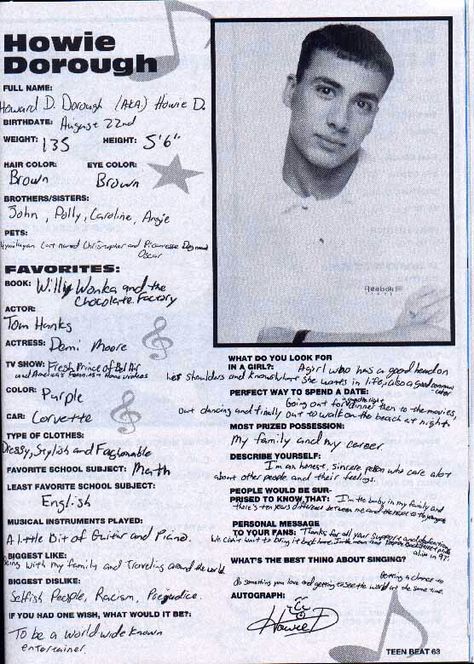 Howie
Dorough
FULL NAME:
Howard D. Dorough (AKA) Howie D.
BIRTHDATE: August 22nd
WEIGHT: 135 HEIGHT: 5'6"
HAIR COLOR: EYE COLOR:
Brown Brown
BROTHERS/SISTERS:
John, Polly, Caroline, Angie
PETS:
Cat named Christopher and
Oscar
FAVORITES:
BOOK: Willy Wonka and the
Chocolate Factory
ACTOR:
Tom Hanks
ACTRESS: Demi Moore
TV SHOW: Fresh Prince of Bel Air
and America's Funniest Home videos
COLOR: Purple
CAR: Corvette
TYPE OF CLOTHES:
Dressy, Stylish and Fashionable
FAVORITE SCHOOL SUBJECT: Math
LEAST FAVORITE SCHOOL SUBJECT:
English
MUSICAL INSTRUMENTS PLAYED:
A little Bit of Guitar and Piano.
BIGGEST LIKE:
Being with my family and Traveling around the world
BIGGEST DISLIKE:
Selfish People, Racism, Prejudice.
IF YOU HAD ONE WISH, WHAT WOULD IT BE?:
To be a world wide known
entertainer.
Reebok
WHAT DO YOU LOOK FOR
IN A GIRL?: A girl who has a good head on
her shoulders and knows what she wants in life, also a good
PERFECT WAY TO SPEND A DATE:
Going out to dinner then to the movies,
out dancing and finally out to walk on the beach at night
MOST PRIZED POSSESSION:
My family and my career
DESCRIBE YOURSELF:
I'm an honest, sincere person who care alot
about other people and their feelings.
PEOPLE WOULD BE SUR-
PRISED TO KNOW THAT: I'm the baby in my family and
there's ten years difference between me and the next to the youngest
PERSONAL MESSAGE
TO YOUR FANS: Thanks for all your support and
We can't wait to bring it back home
WHAT'S THE BEST THING ABOUT SINGING?
Getting a chance to
do something you love and getting to see the world at the same time.
AUTOGRAPH:
Howie D
TEEN BEAT 63